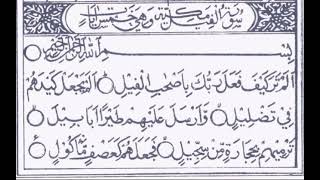 سورة الفيل مكية وهي خمس آيات
بسم الله الرحمن الرحيم
الم تر كيف فعل ربك باصحب الفيل ○ الم يجعل كيدهم
في تضليل ○ وارسل عليهم طيرا ابابيل ○
ترميهم بحجارة من سجيل ○ فجعلهم كعصف ماكول ○